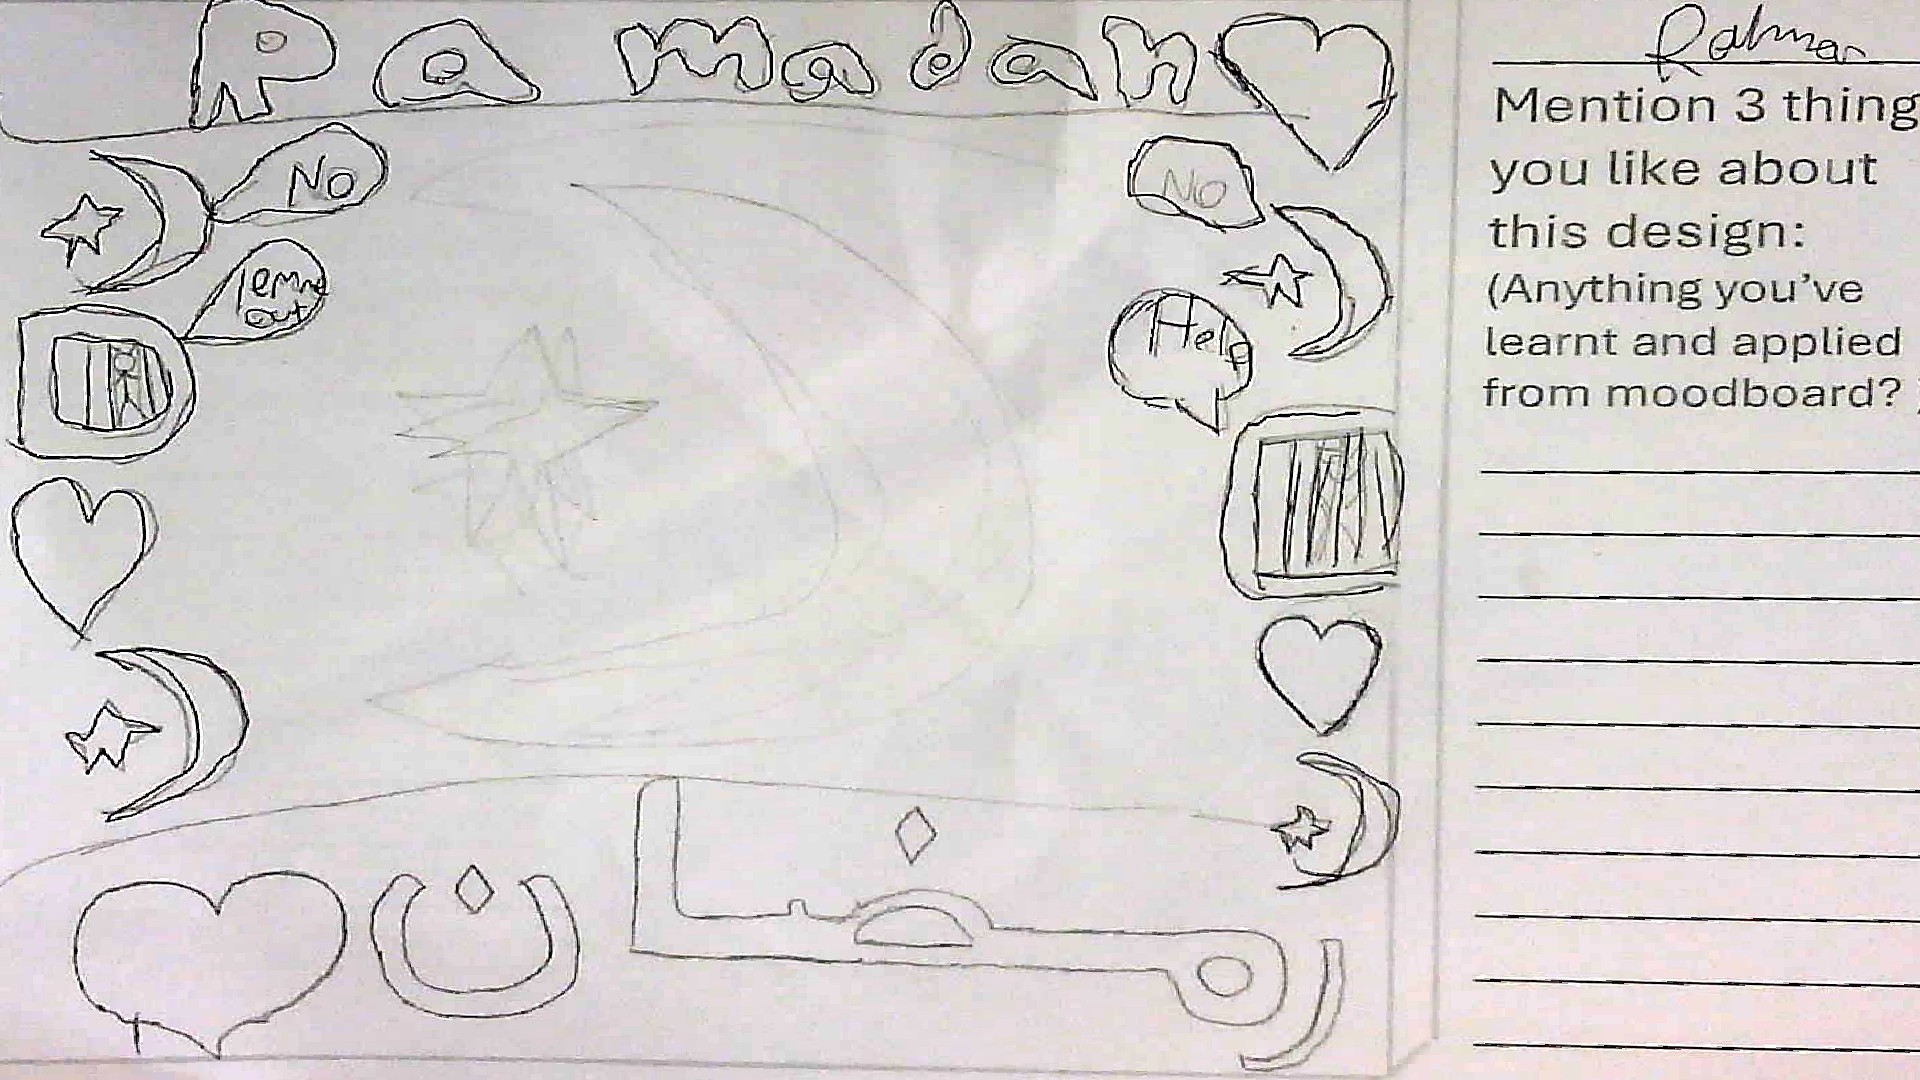 Ramadan
No
No
lemme
out
Help
رمضان
Rahman
Mention 3 thing
you like about
this design:
(Anything you've
learnt and applied
from moodboard?